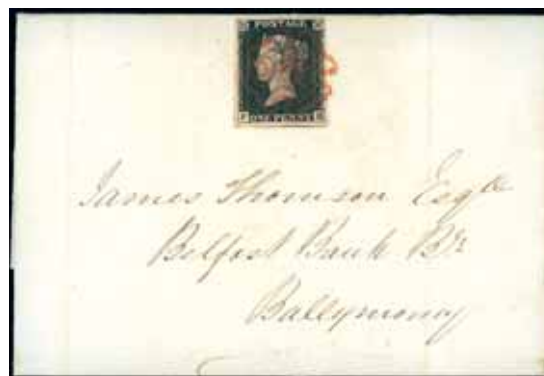 POSTAGE
ONE PENNY
James Thomson Esqre
Belfast Bank Br
Ballymoney